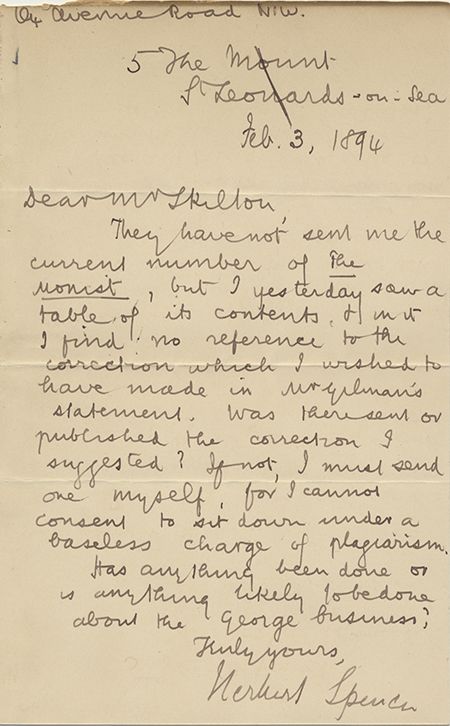 64 Avenue Road N.W.
5 The Mount
St Leonards-on-Sea
Feb. 3, 1894
Dear Mr Skilton
They have not sent me the
current number of The
Monist, but I yesterday saw a
table of its contents, & in it
I find no reference to the
correction which I wished to
have made in Mr Gilman's
statement. Was there sent or
published the correction I
suggested? If not, I must send
one myself, for I cannot
consent to sit down under a
baseless charge of plagiarism.
Has anything been done or
is anything likely to be done
about the George business?
Truly yours,
Herbert Spencer